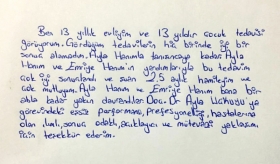 Ben 13 yıllık evliyim ve 13 yıldır çocuk tedavisi
görüyorum. Gördüğüm tedavilerin hiç birinde iyi bir
sonuç alamadım. Ayla Hanımla tanışıncaya kadar. Ayla
Hanım ve Emriye Hanım'ın yardımlarıyla bu tedavim
çok iyi sonuçlandı ve şuan 2,5 aylık hamileyim ve
çok mutluyum. Ayla Hanım ve Emriye Hanım bana bir
abla kadar yakın davrandılar. Doc. Dr Ayla UÇKUSU ya
görevindeki essiz performansı, profesyonelliği, hastalarına
olan ilgili, sonuç odaklı, açıklayıcı ve mütevazi yaklaşımı
için teşekkür ederim.